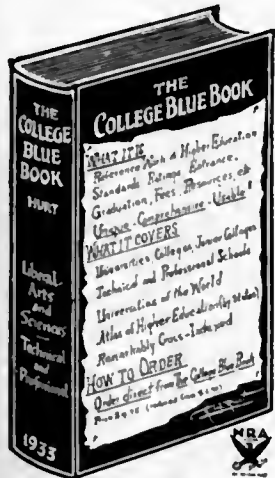 THE
COLLEGE
BLUE
BOOK
HURT
Liberal
Arts
and
Sciences
Technical
and
Professional
1933
THE
COLLEGE BLUE BOOK
WHAT IT IS
Reference Work of Higher Education
Standards, Ratings, Entrance,
Graduation, Fees, Resources, etc
Unique - Comprehensive - Usable!
WHAT IT COVERS
Universities, Colleges, Junior Colleges
Technical and Professional Schools
Universities of the World
Atlas of Higher Education (by states)
Remarkably Cross-Indexed
HOW TO ORDER
Order direct from The College Blue Book
NRA